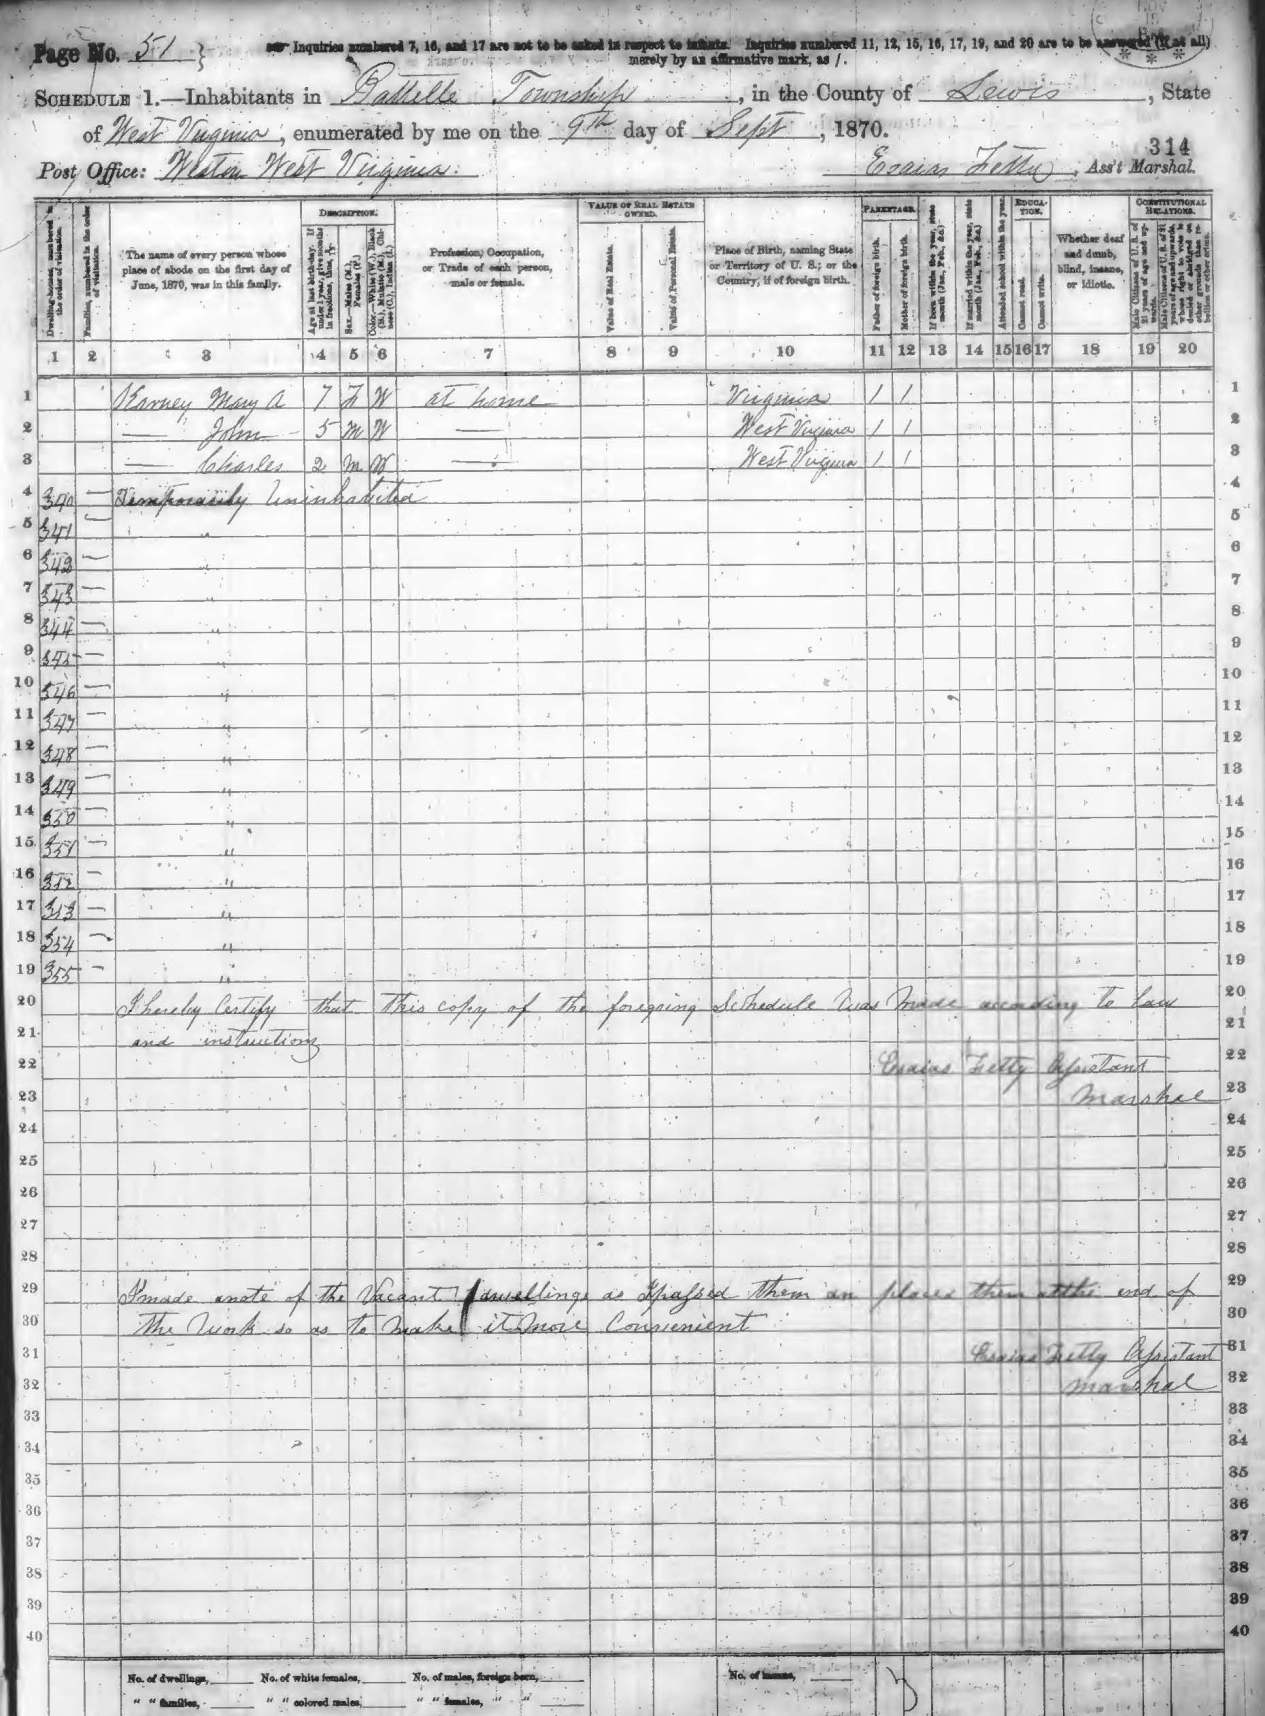 Page No. 51
Inquiries numbered 7, 16, and 17 are not to be asked in respect to infants. Inquiries numbered 11, 12, 15, 16, 17, 19, and 20 are to be answered (if at all)
merely by an affirmative mark, as /.
SCHEDULE 1.—Inhabitants in Battelle Township, in the County of Lewis, State
of West Virginia, enumerated by me on the 9th day of Sept, 1870.
314
Post Office: Weston West Virginia. Esaias Fetty, Ass't Marshal.
Dwelling-houses, numbered in the order of visitation.
Families, numbered in the order of visitation.
The name of every person whose place of abode on the first day of June, 1870, was in this family.
DESCRIPTION.
Age at last birth-day. If under 1 year, give months in fractions, thus, 
Sex.—Males (M.), Females (F.)
Color.—White (W.), Black (B.), Mulatto (M.), Chinese (C.), Indian (I.)
Profession, Occupation, or Trade of each person, male or female.
VALUE OF REAL ESTATE OWNED.
Value of Real Estate.
Value of Personal Estate.
Place of Birth, naming State or Territory of U. S.; or the Country, if of foreign birth.
PARENTAGE.
Father of foreign birth.
Mother of foreign birth.
If born within the year, state month (Jan., Feb., &c.)
If married within the year, state month (Jan., Feb., &c.)
EDUCATION.
Attended school within the year.
Cannot read.
Cannot write.
Whether deaf and dumb, blind, insane, or idiotic.
CONSTITUTIONAL RELATIONS.
Male Citizens of U. S. of 21 years of age and upwards.
Male Citizens of U. S. of 21 years of age and upwards, whose right to vote is denied or abridged on other grounds than rebellion or other crime.
1 2 3 4 5 6 7 8 9 10 11 12 13 14 15 16 17 18 19 20
1 Karney Mary A 7 F W at home Virginia 1 1 1
2 — John 5 M W — West Virginia 1 1 2
3 — Charles 2 M W — West Virginia 1 1 3
4 340 — Temporarily Uninhabited 4
5 341 — " 5
6 342 — " 6
7 343 — " 7
8 344 — " 8
9 345 — " 9
10 346 — " 10
11 347 — " 11
12 348 — " 12
13 349 — " 13
14 350 — " 14
15 351 — " 15
16 352 — " 16
17 353 — " 17
18 354 — " 18
19 355 — " 19
20 I hereby Certify that this copy of the foregoing Schedule was Made according to law 20
21 and instructions 21
22 Esaias Fetty Assistant 22
23 Marshal 23
24 24
25 25
26 26
27 27
28 28
29 I made a note of the Vacant dwellings as I passed them an places them at the end of 29
30 the Work so as to Make it More Convenient 30
31 Esaias Fetty Assistant 31
32 Marshal 32
33 33
34 34
35 35
36 36
37 37
38 38
39 39
40 40
No. of dwellings, No. of white females, No. of males, foreign born, No. of insane,
" " families, " " colored males, " " females, " "